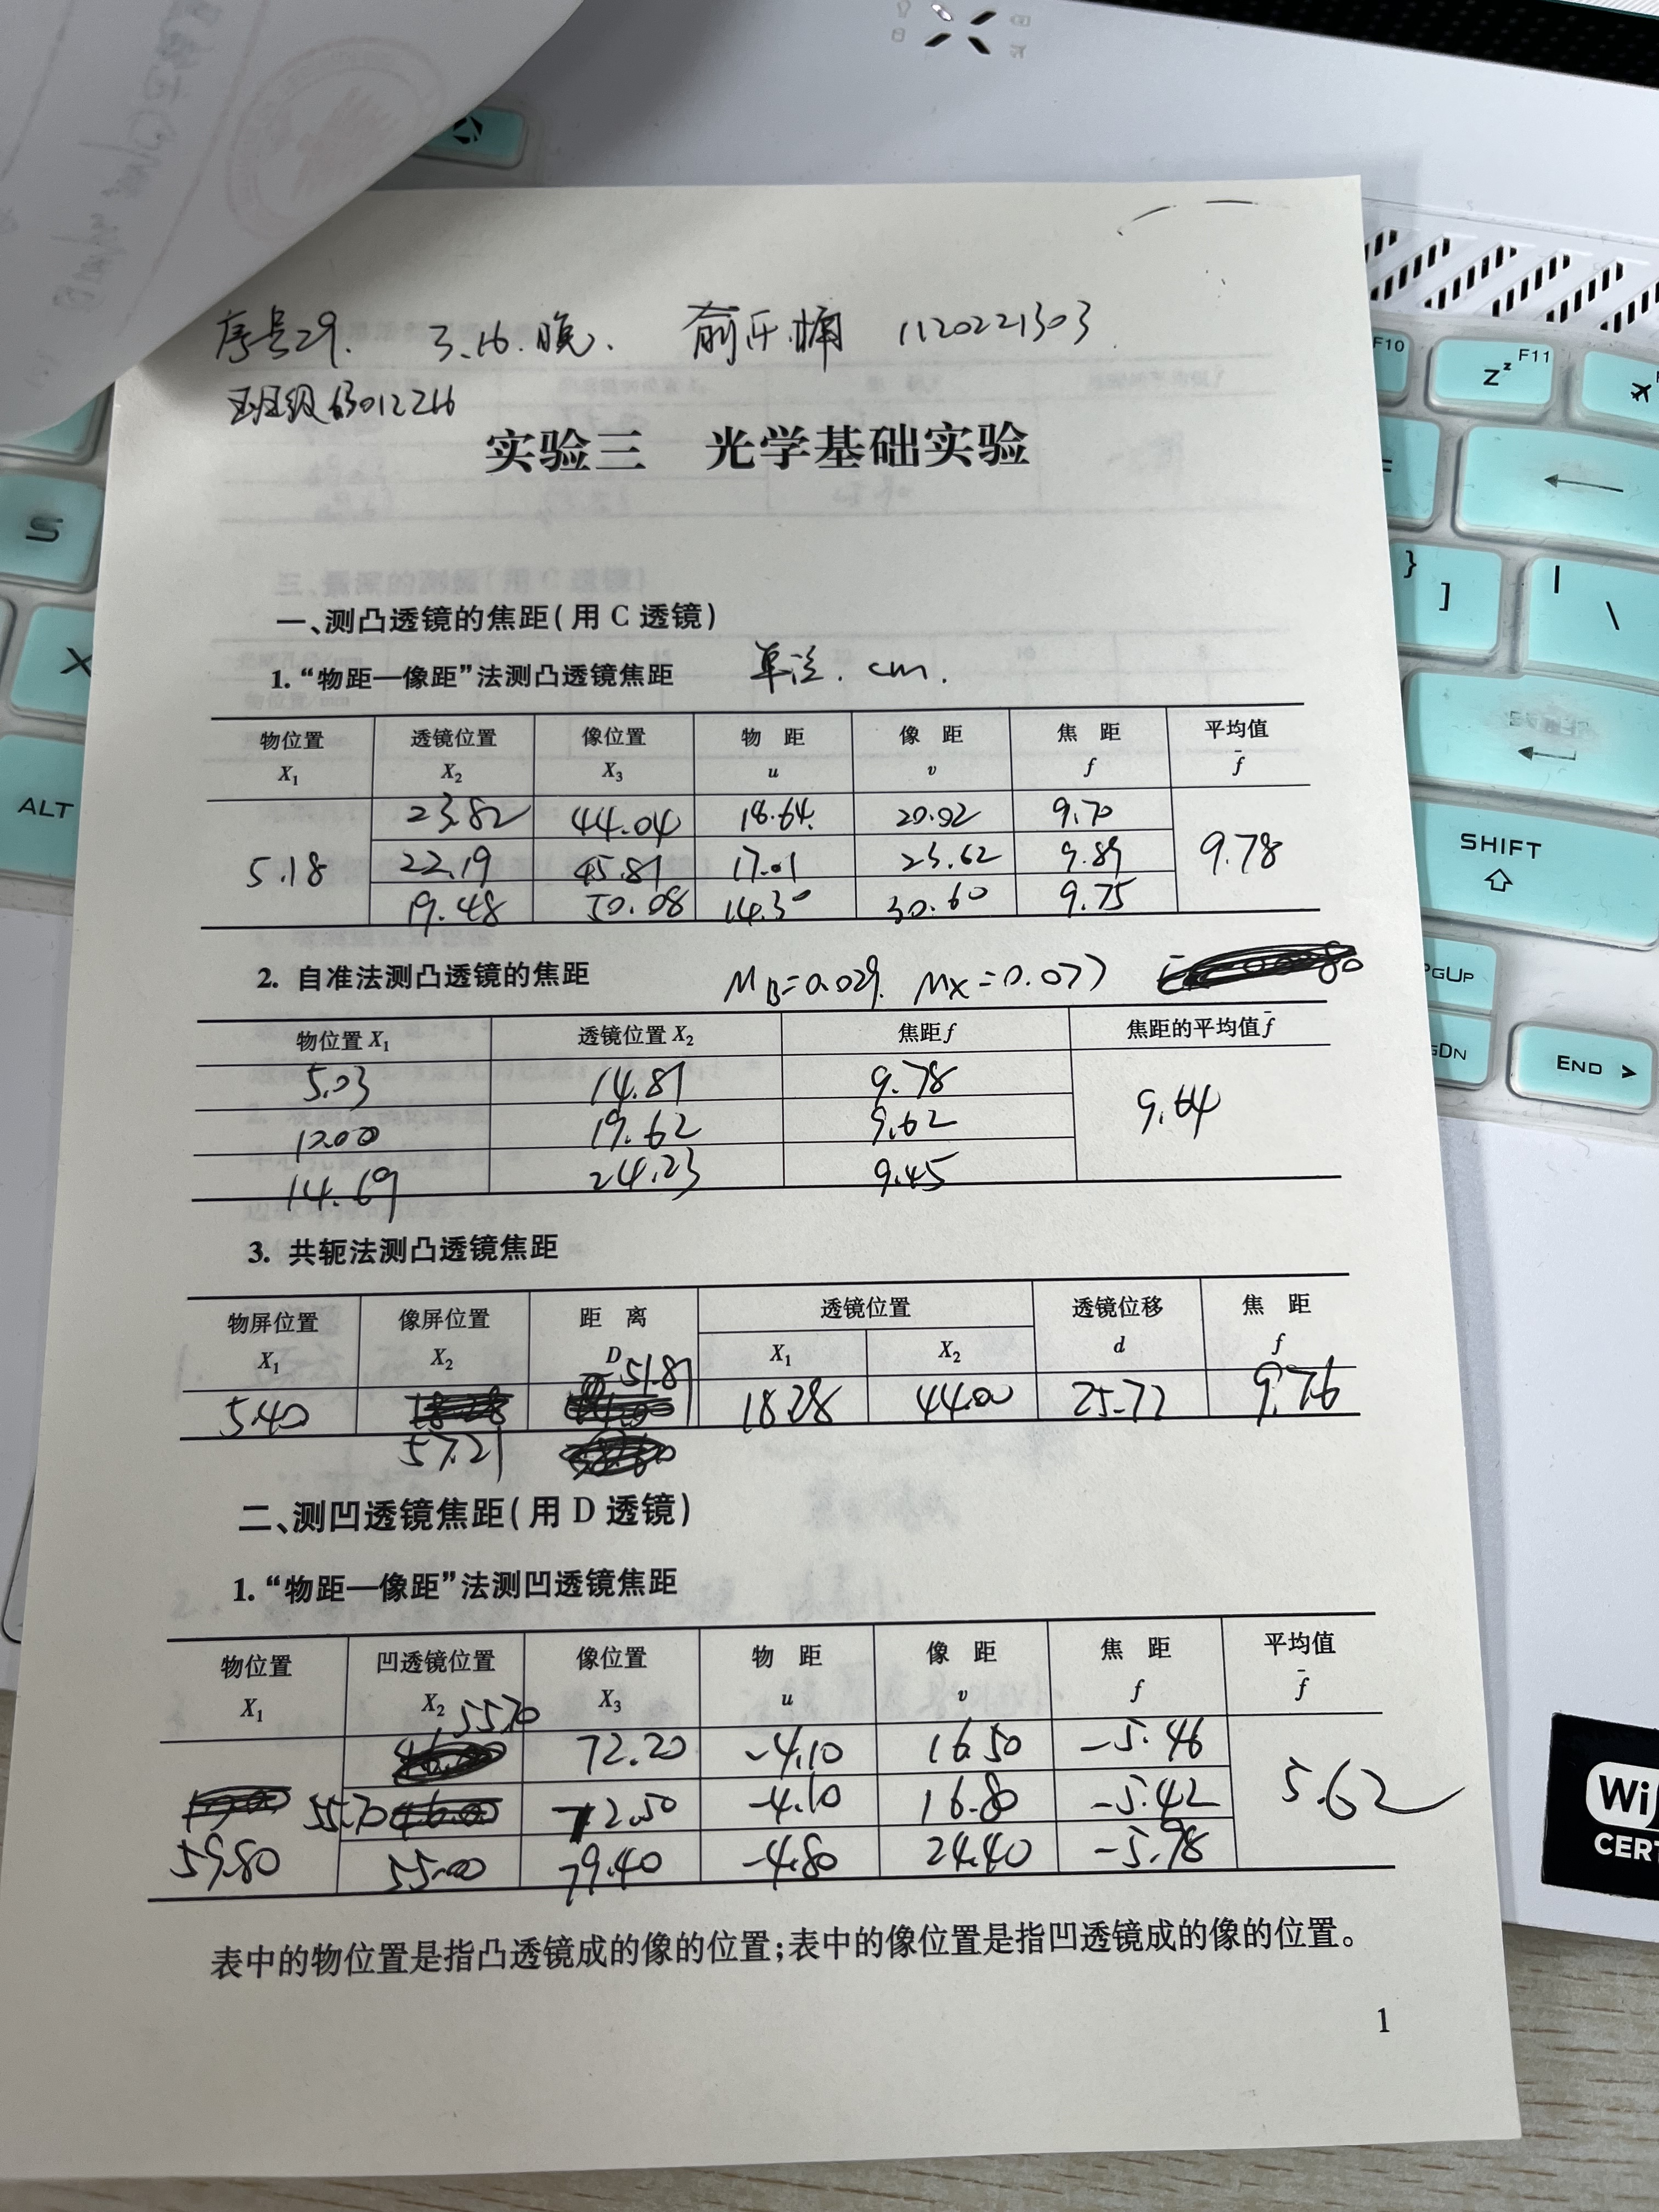 序号29. 3.16.晚. 1120221303
班级63012216
实验三 光学基础实验
一、测凸透镜的焦距(用C透镜)
1. “物距—像距”法测凸透镜焦距 单位. cm.
物位置 X₁ 透镜位置 X₂ 像位置 X₃ 物 距 u 像 距 v 焦 距 f 平均值 f̄
23.82 44.04 18.64. 20.02 9.70
5.18 22.19 45.81 17.01 23.62 9.89 9.78
19.48 50.08 14.30 30.60 9.75
2. 自准法测凸透镜的焦距 MB=0.029. MX=0.077
物位置X₁ 透镜位置X₂ 焦距f 焦距的平均值f̄
5.03 14.81 9.78
10.00 19.62 9.62 9.64
14.69 24.23 9.45
3. 共轭法测凸透镜焦距
物屏位置 X₁ 像屏位置 X₂ 距 离 D 透镜位置 X₁ X₂ 透镜位移 d 焦 距 f
5.40 57.21 51.81 18.28 44.00 25.72 9.76
二、测凹透镜焦距(用D透镜)
1. “物距—像距”法测凹透镜焦距
物位置 X₁ 凹透镜位置 X₂ 像位置 X₃ 物 距 u 像 距 v 焦 距 f 平均值 f̄
55.70 72.20 -4.10 16.50 -5.46
59.80 55.70 72.50 -4.10 16.80 -5.42 5.62
55.00 79.40 -4.80 24.40 -5.98
表中的物位置是指凸透镜成的像的位置;表中的像位置是指凹透镜成的像的位置。
1
S
X
ALT
F10
F11
Zzz
}
]
|
\
SHIFT
PGUP
PGDN
END
Wi
CERT